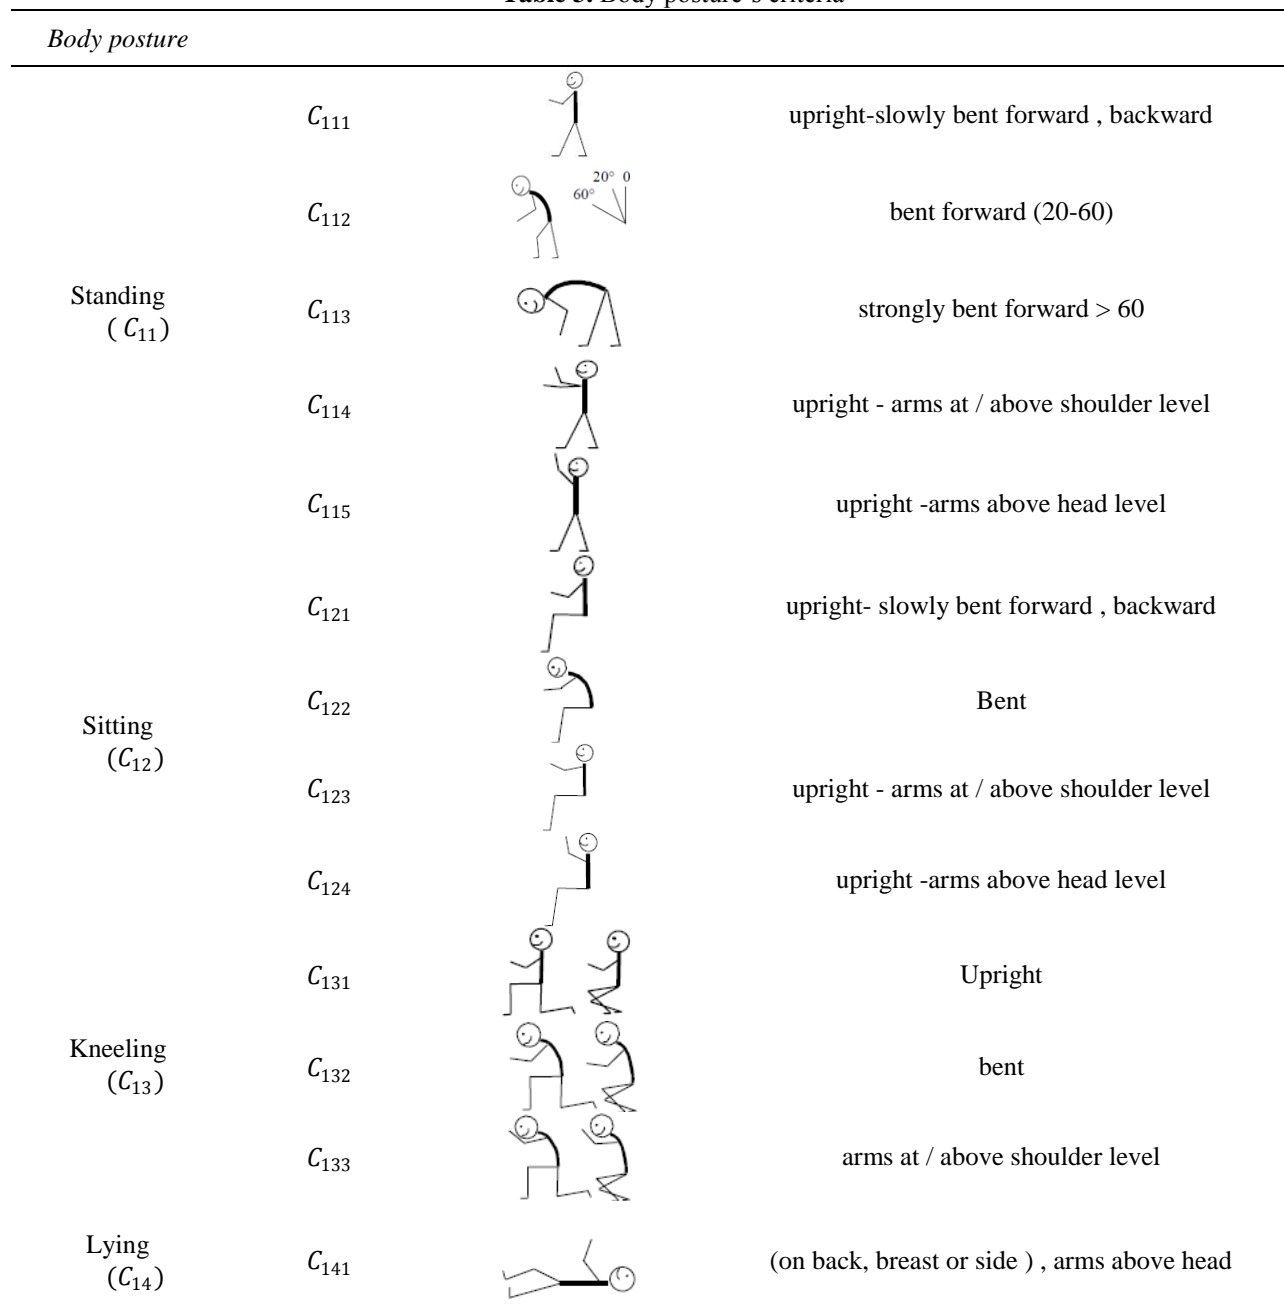 Table 3. Body posture's criteria
Body posture
C111 upright-slowly bent forward , backward
20° 0
60°
C112 bent forward (20-60)
Standing
( C11)
C113 strongly bent forward > 60
C114 upright - arms at / above shoulder level
C115 upright -arms above head level
C121 upright- slowly bent forward , backward
C122 Bent
Sitting
(C12)
C123 upright - arms at / above shoulder level
C124 upright -arms above head level
C131 Upright
Kneeling
(C13)
C132 bent
C133 arms at / above shoulder level
Lying
(C14)
C141 (on back, breast or side ) , arms above head